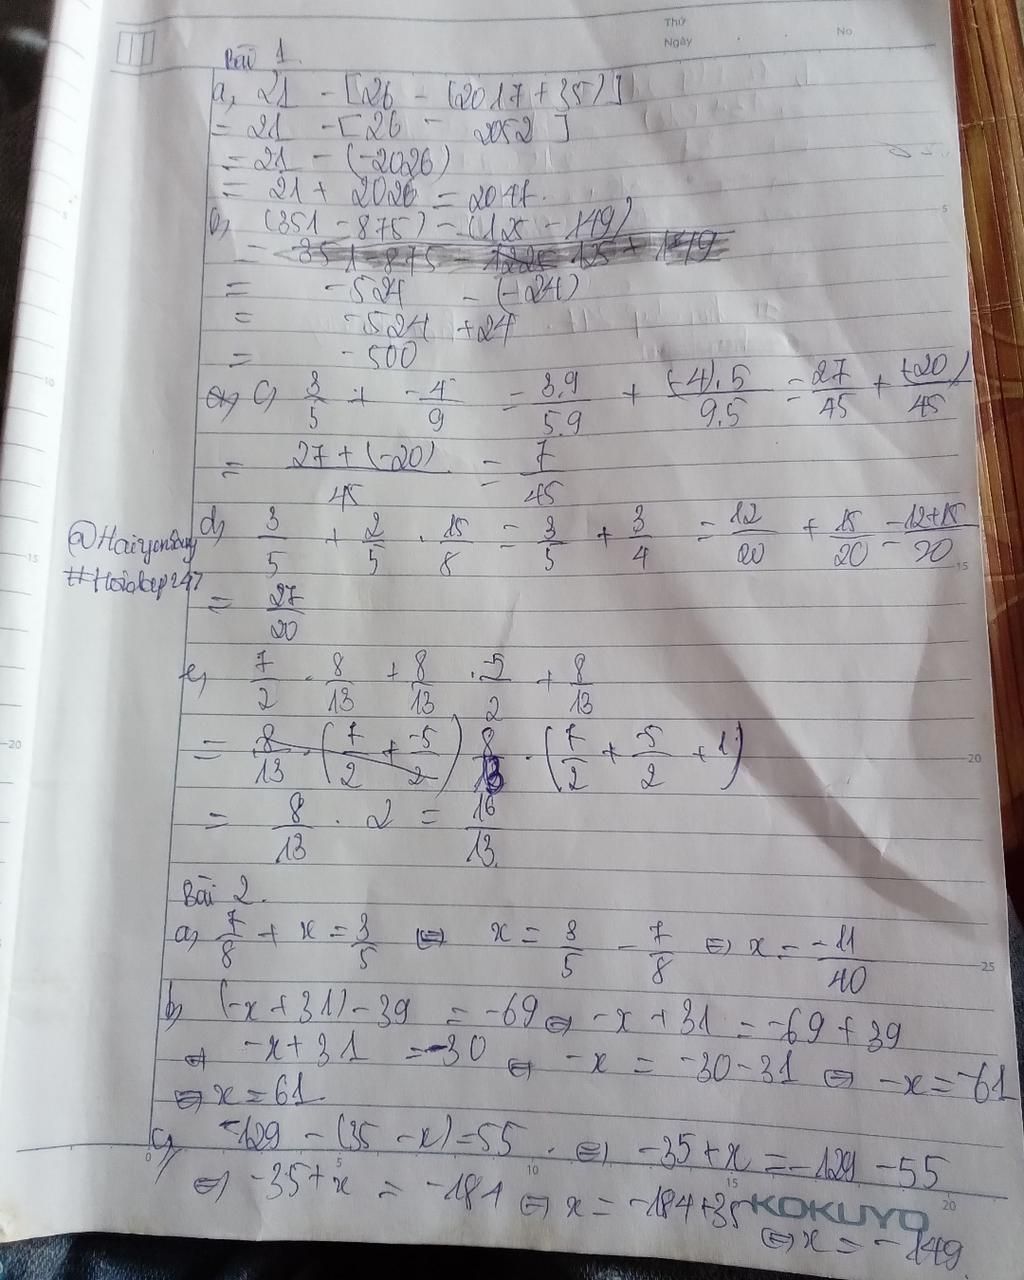 Thứ
Ngày
No
Bài 1.
a, 21 - [26 - (2017+35)]
= 21 - [26 - 2052]
= 21 - (-2026)
= 21 + 2026 = 2047.
b, (351 - 875) - (125 - 149)
= 351 - 875 - 1225 125 + 149
= -524 - (-24)
= -524 + 24
= -500
c, 3/5 + -4/9 = 3.9/5.9 + (-4).5/9.5 = 27/45 + (-20)/45
= 27+(-20)/45 = 7/45
d, 3/5 + 2/5 . 15/8 = 3/5 + 3/4 = 12/20 + 15/20 = 12+15/20
= 27/20
@Haiyenhoang
#Hoidap247
e, 7/2 . 8/13 + 8/13 . -5/2 + 8/13
= 8/13 . (7/2 + -5/2) 8/13 . (7/2 + -5/2 + 1)
= 8/13 . 2 = 16/13.
Bài 2.
a, 7/8 + x = 3/5 ⇔ x = 3/5 - 7/8 ⇔ x = -11/40
b, (-x+31) - 39 = -69 ⇔ -x + 31 = -69 + 39
⇔ -x + 31 = -30 ⇔ -x = -30 - 31 ⇔ -x = -61
⇔ x = 61
c, -129 - (35 - x) = 55. ⇔ -35 + x = -129 - 55
⇔ -35 + x = -184 ⇔ x = -184 + 35
⇔ x = -149
KOKUYO